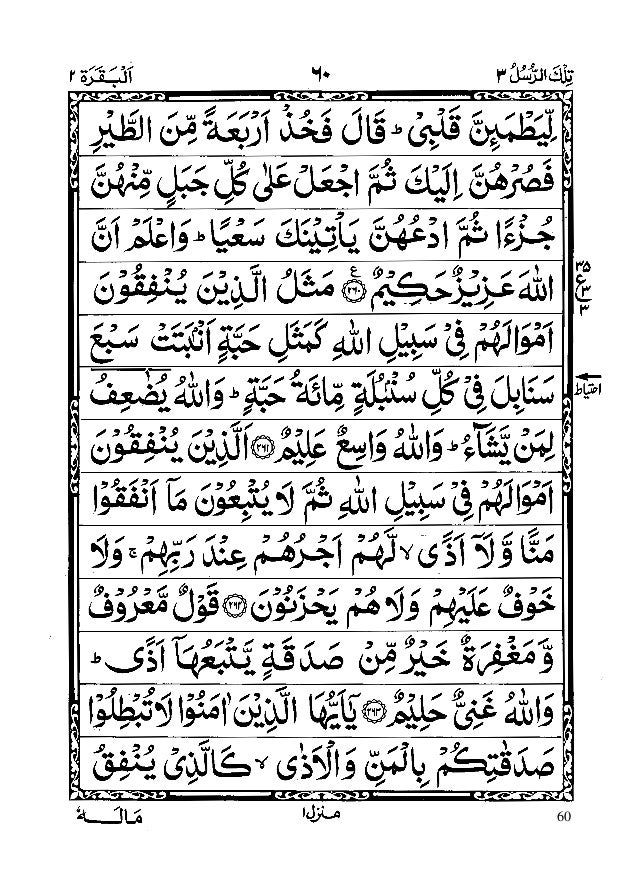 تِلْكَ الرُّسُلُ ٣ ٦٠ اَلْبَقَرَة ٢
لِّيَطْمَئِنَّ قَلْبِىْ ؕ قَالَ فَخُذْ اَرْبَعَةً مِّنَ الطَّيْرِ
فَصُرْهُنَّ اِلَيْكَ ثُمَّ اجْعَلْ عَلٰى كُلِّ جَبَلٍ مِّنْهُنَّ
جُزْءًا ثُمَّ ادْعُهُنَّ يَاْتِيْنَكَ سَعْيًا ؕ وَاعْلَمْ اَنَّ
اللّٰهَ عَزِيْزٌ حَكِيْمٌ ۟ع ﴿٢٦٠﴾ مَثَلُ الَّذِيْنَ يُنْفِقُوْنَ
٣٥ ع ٣ ٣
اَمْوَالَهُمْ فِىْ سَبِيْلِ اللّٰهِ كَمَثَلِ حَبَّةٍ اَنْۢبَتَتْ سَبْعَ
سَنَابِلَ فِىْ كُلِّ سُنْۢبُلَةٍ مِّائَةُ حَبَّةٍ ؕ وَاللّٰهُ يُضٰعِفُ
احتیاط
لِمَنْ يَّشَآءُ ؕ وَاللّٰهُ وَاسِعٌ عَلِيْمٌ ﴿٢٦١﴾ اَلَّذِيْنَ يُنْفِقُوْنَ
اَمْوَالَهُمْ فِىْ سَبِيْلِ اللّٰهِ ثُمَّ لَا يُتْبِعُوْنَ مَاۤ اَنْفَقُوْا
مَنًّا وَّلَاۤ اَذًى ۙ لَّهُمْ اَجْرُهُمْ عِنْدَ رَبِّهِمْ ۚ وَلَا
خَوْفٌ عَلَيْهِمْ وَلَا هُمْ يَحْزَنُوْنَ ﴿٢٦٢﴾ قَوْلٌ مَّعْرُوْفٌ
وَّمَغْفِرَةٌ خَيْرٌ مِّنْ صَدَقَةٍ يَّتْبَعُهَاۤ اَذًى ؕ
وَاللّٰهُ غَنِىٌّ حَلِيْمٌ ﴿٢٦٣﴾ يٰۤاَيُّهَا الَّذِيْنَ اٰمَنُوْا لَا تُبْطِلُوْا
صَدَقٰتِكُمْ بِالْمَنِّ وَالْاَذٰى ۙ كَالَّذِىْ يُنْفِقُ
60 منزل ١ مَالَهٗ